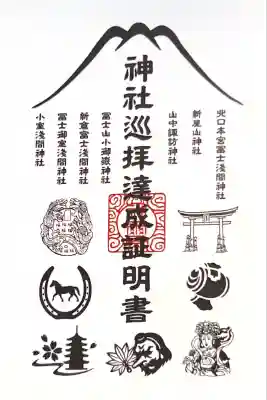 神社巡拝達成証明書
北口本宮冨士浅間神社
新屋山神社
山中諏訪神社
冨士山小御嶽神社
新倉富士浅間神社
冨士御室浅間神社
小室浅間神社